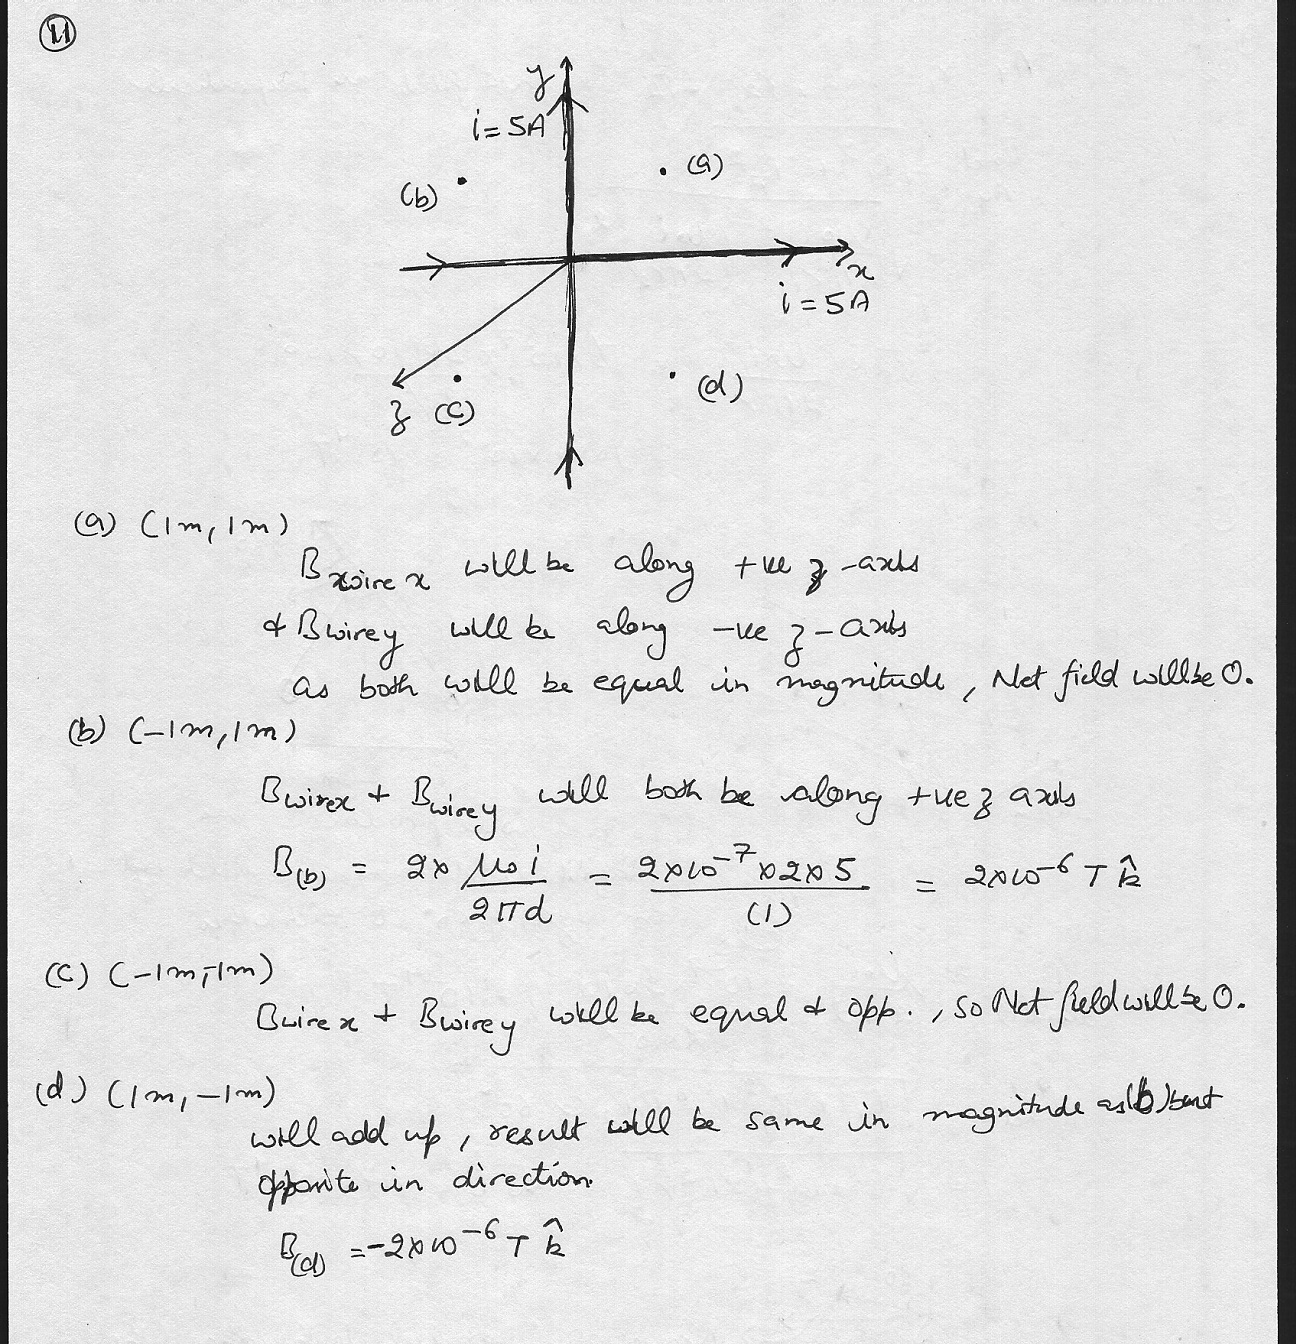 11
y
i = 5A
(a)
(b)
x
i = 5A
z (c)
(d)
(a) (1m, 1m)
B wire x will be along +ve z-axis
& Bwirey will be along -ve z-axis
as both will be equal in magnitude, Net field will be 0.
(b) (-1m, 1m)
Bwirex + Bwirey will both be along +ve z axis
B(b) = 2× μ₀i/2πd = 2×10⁻⁷×2×5/(1) = 2×10⁻⁶ T k̂
(c) (-1m,-1m)
Bwirex + Bwirey will be equal & opp., so Net field will be 0.
(d) (1m, -1m)
will add up, result will be same in magnitude as (b) but
opposite in direction.
B(d) = -2×10⁻⁶ T k̂